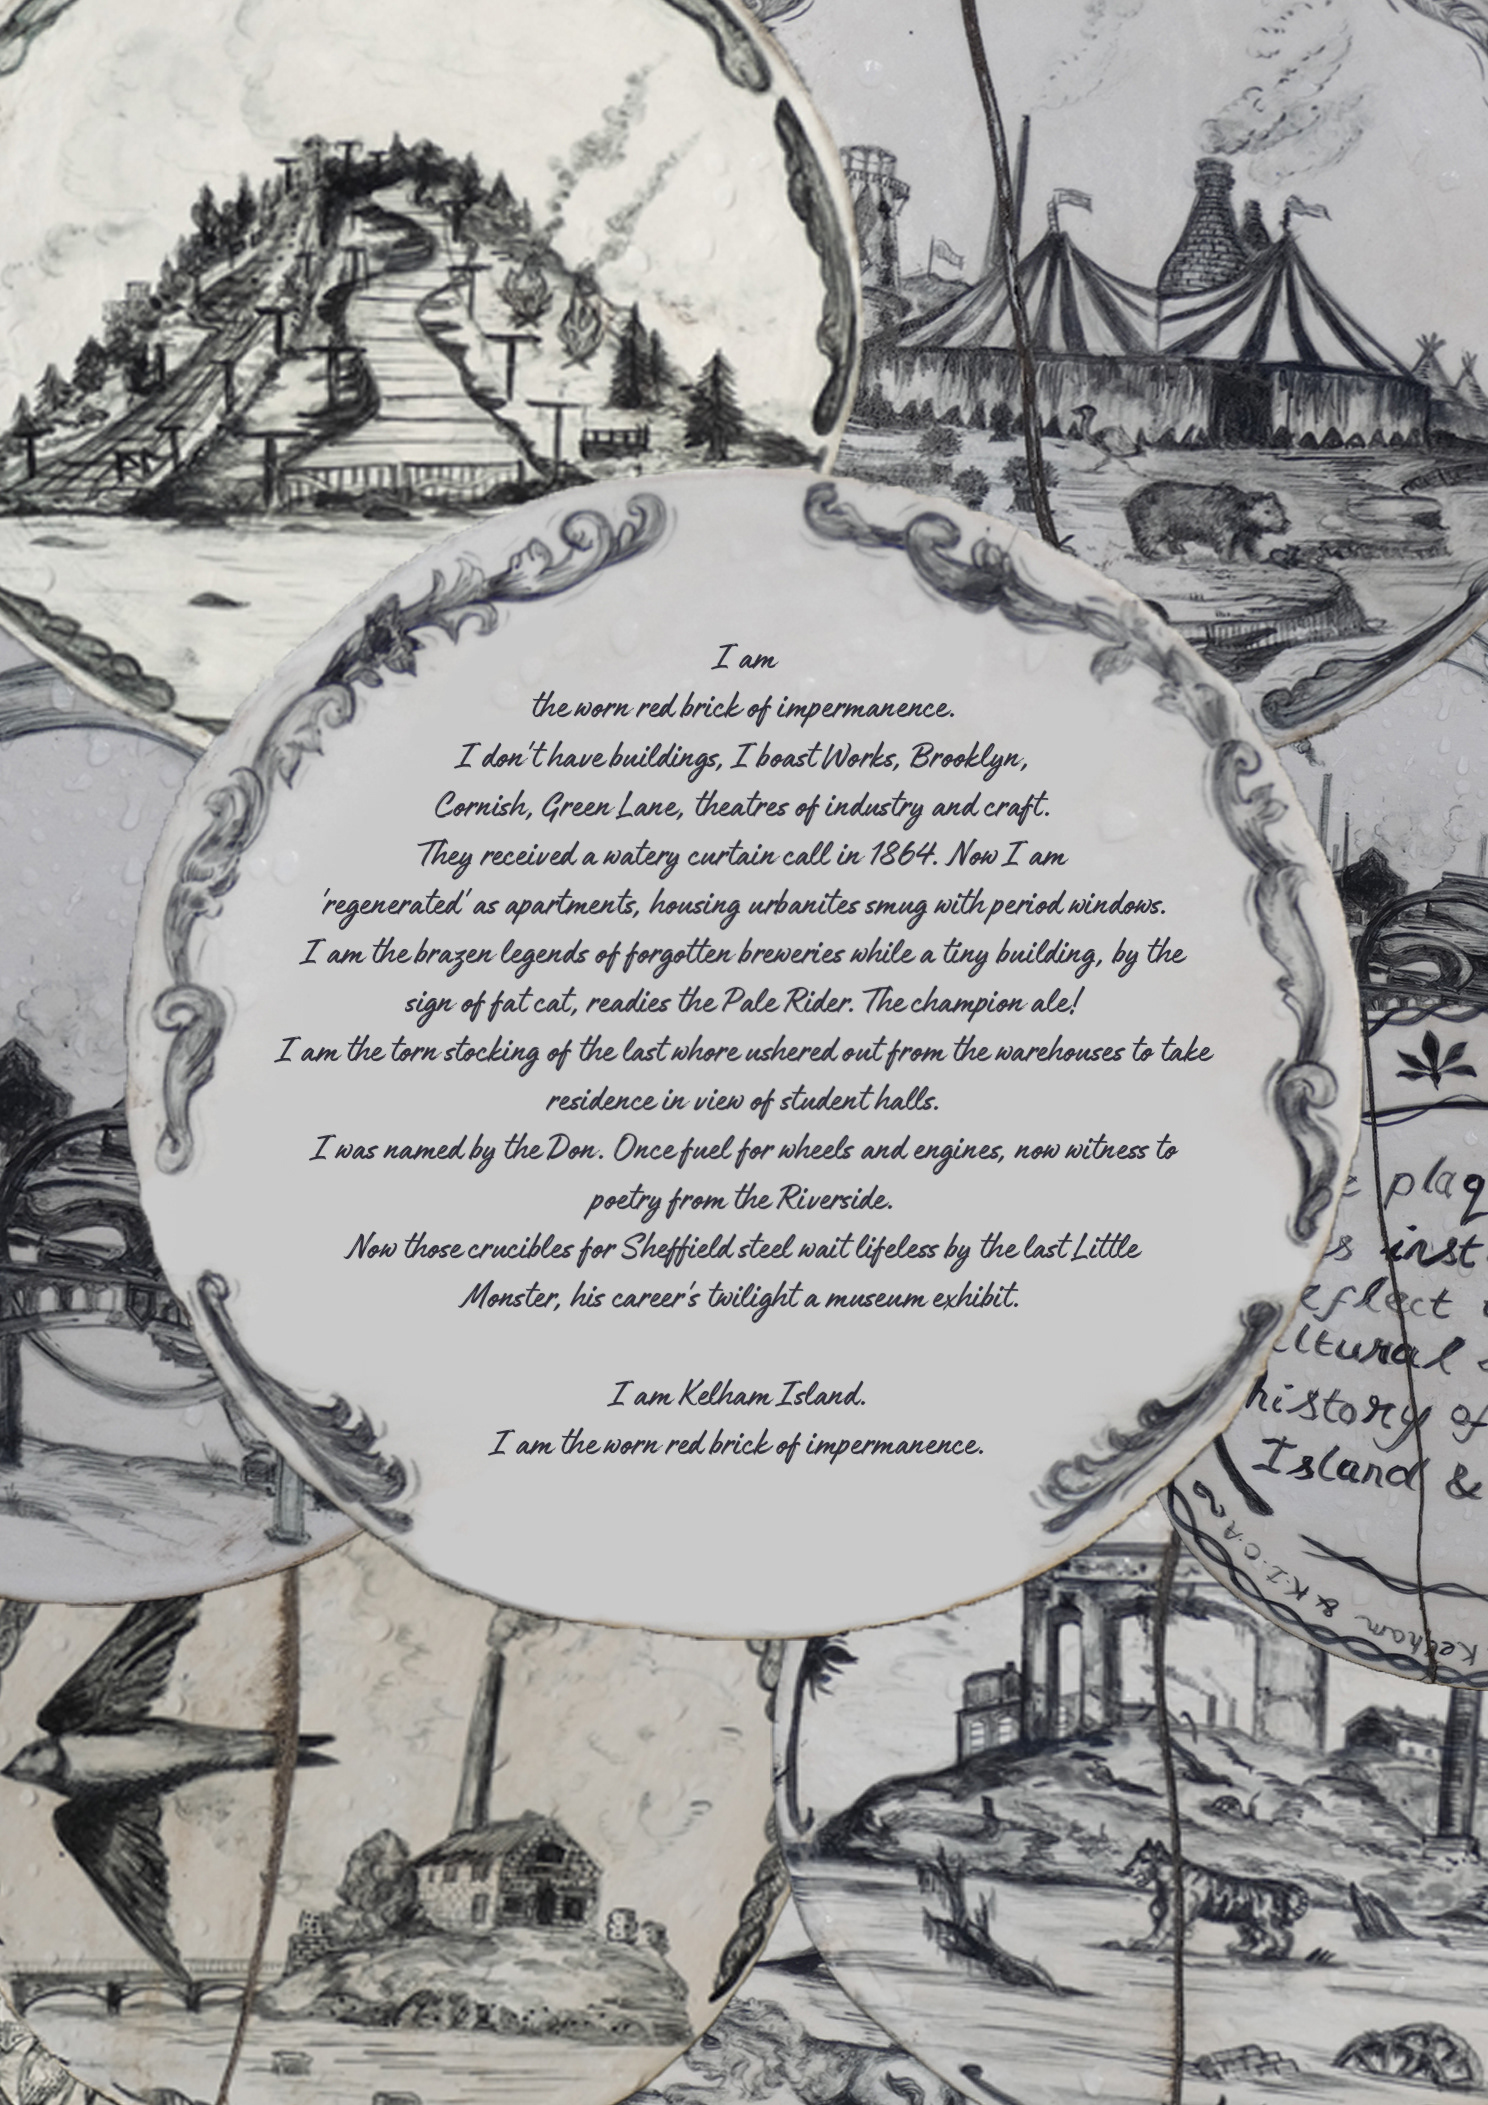 I am
the worn red brick of impermanence.
I don't have buildings, I boast Works, Brooklyn,
Cornish, Green Lane, theatres of industry and craft.
They received a watery curtain call in 1864. Now I am
'regenerated' as apartments, housing urbanites smug with period windows.
I am the brazen legends of forgotten breweries while a tiny building, by the
sign of fat cat, readies the Pale Rider. The champion ale!
I am the torn stocking of the last whore ushered out from the warehouses to take
residence in view of student halls.
I was named by the Don. Once fuel for wheels and engines, now witness to
poetry from the Riverside.
Now those crucibles for Sheffield steel wait lifeless by the last Little
Monster, his career's twilight a museum exhibit.
I am Kelham Island.
I am the worn red brick of impermanence.
history of
Island &
Kelham & K.I.C.A